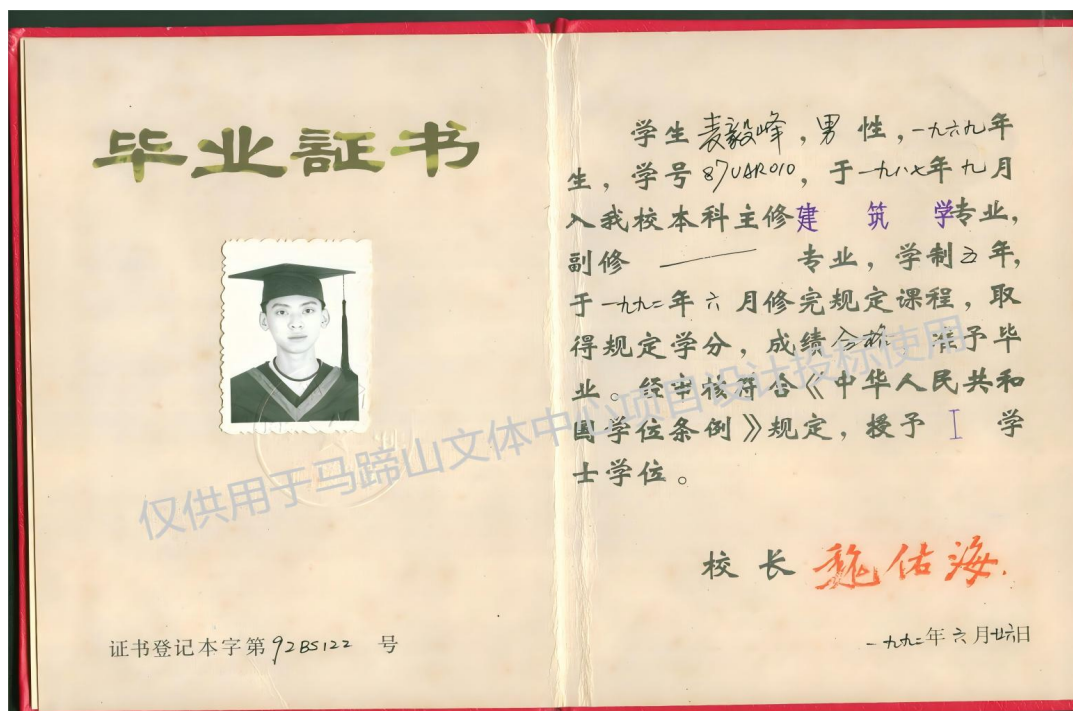 毕业証书
学生麦毅峰，男性，一九六九年
生，学号87UAR010，于一九八七年九月
入我校本科主修建筑学专业，
副修 —— 专业，学制五年，
于一九九二年六月修完规定课程，取
得规定学分，成绩合格 准予毕
业。经审核符合《中华人民共和
国学位条例》规定，授予 工 学
士学位。
校长 魏佑海
证书登记本字第92BS122号
一九九二年六月廿六日
仅供用于马蹄山文体中心项目设计投标使用